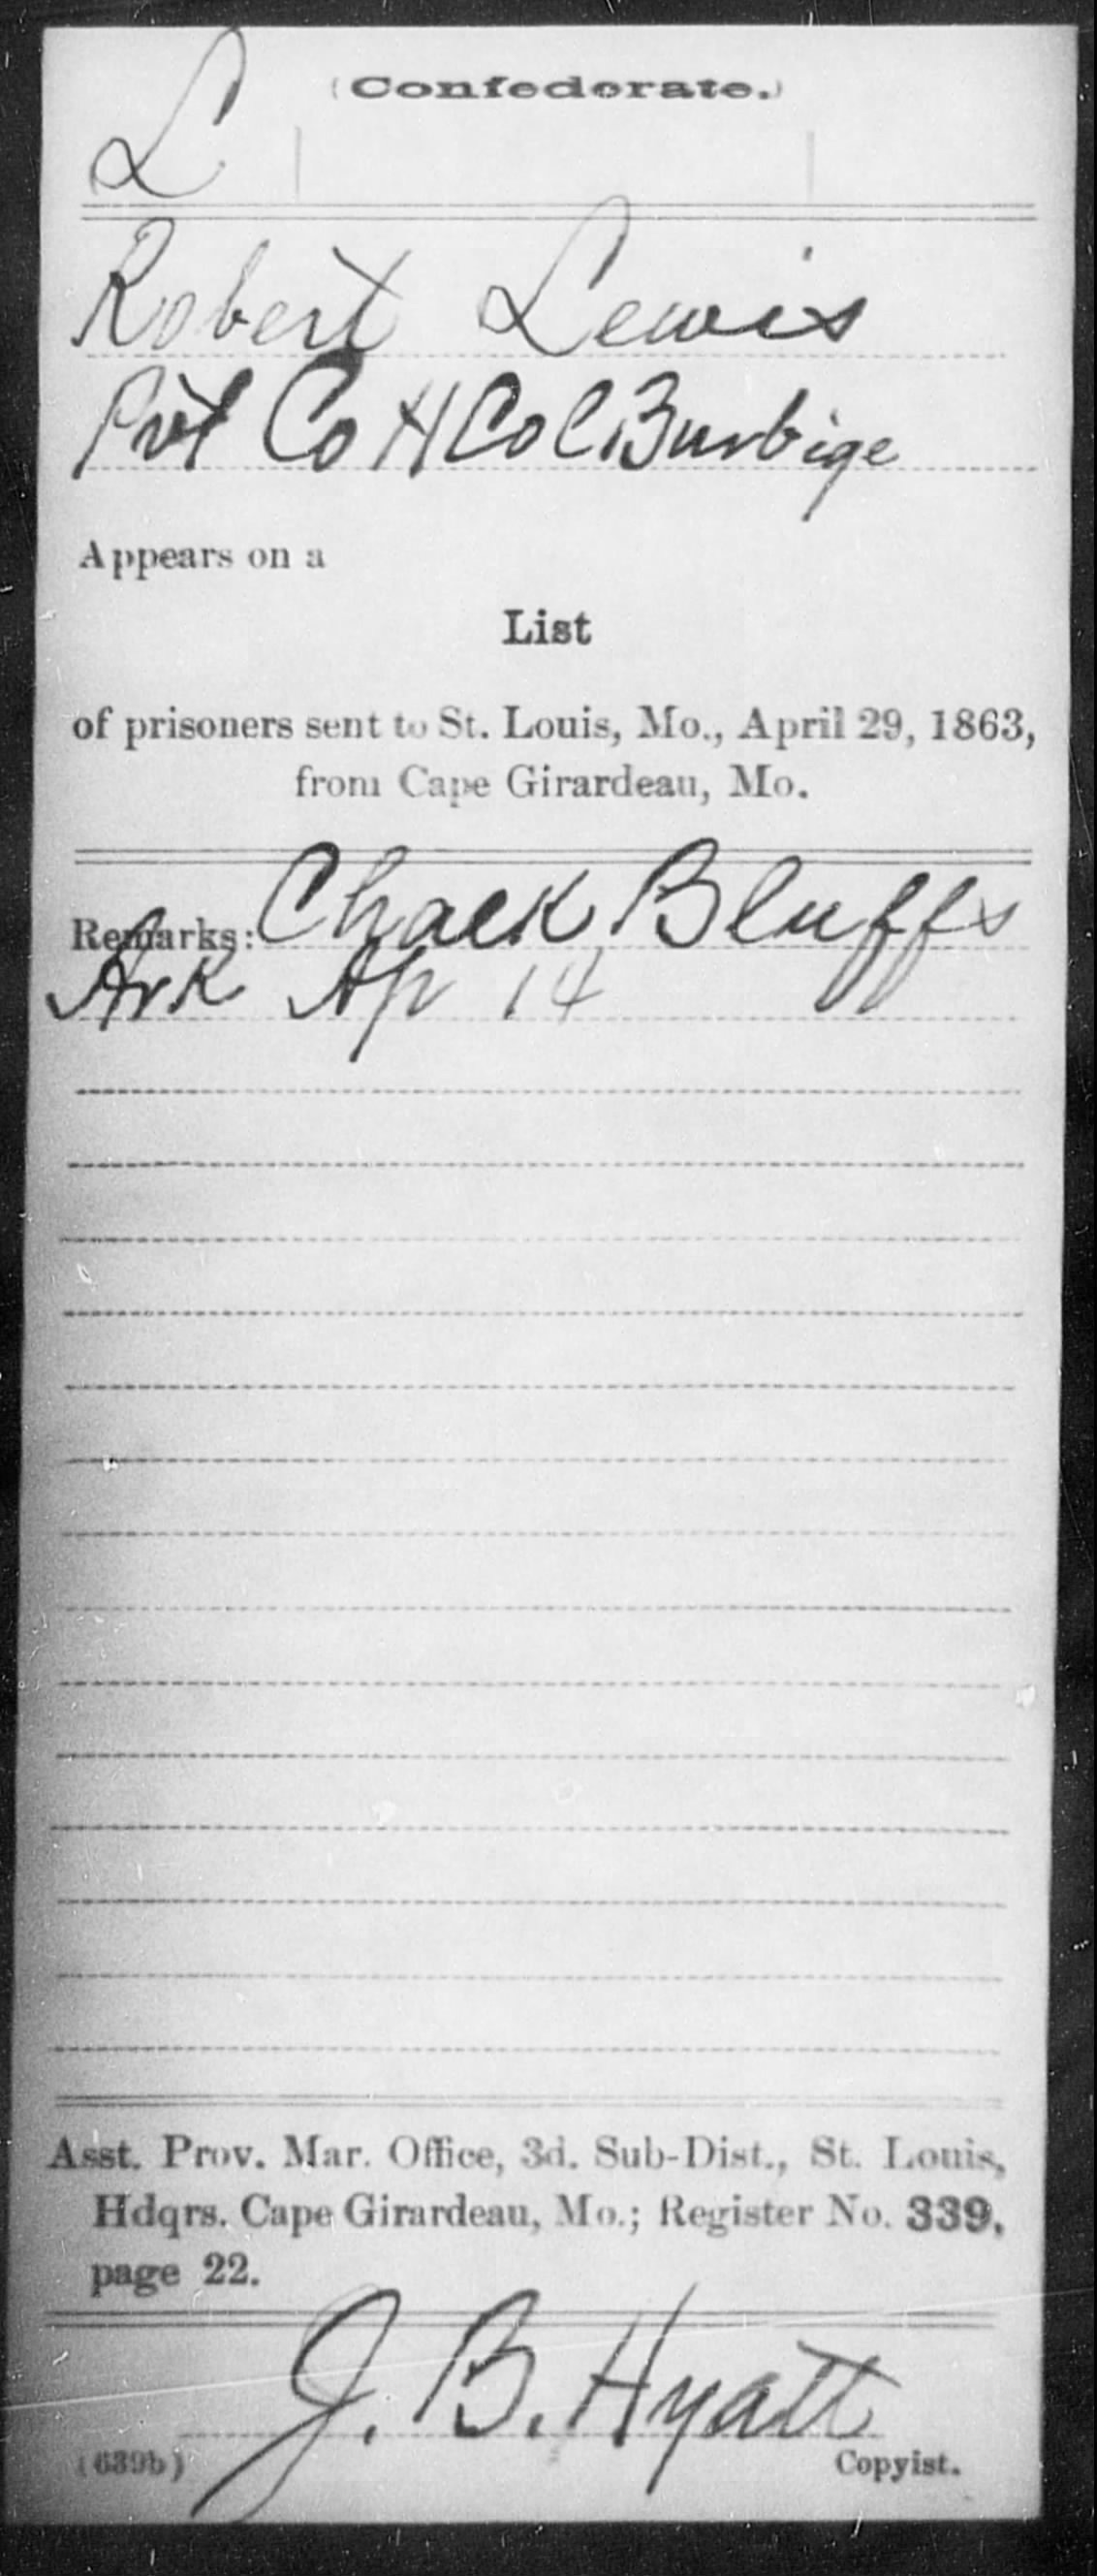 (Confederate.)
L
Robert Lewis
Pvt Co H Col Burbige
Appears on a
List
of prisoners sent to St. Louis, Mo., April 29, 1863,
from Cape Girardeau, Mo.
Remarks: Chalk Bluffs
Ark Ap 14
Asst. Prov. Mar. Office, 3d. Sub-Dist., St. Louis,
Hdqrs. Cape Girardeau, Mo.; Register No. 339,
page 22.
J. B. Hyatt
(639b) Copyist.